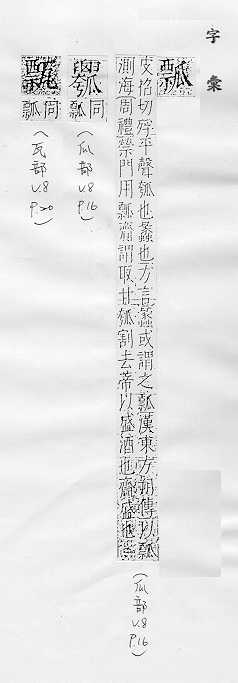 字彙
瓢
皮招切殍平聲瓠也蠡也方言蠡或謂之瓢漢東方朔傳以瓢
測海周禮禜門用瓢齎謂取甘瓠割去蔕以盛酒也齎盛也
(瓜部 V.8 P.16)
同瓢
(瓜部 V.8 P.16)
同瓢
(瓦部 V.8 P.20)